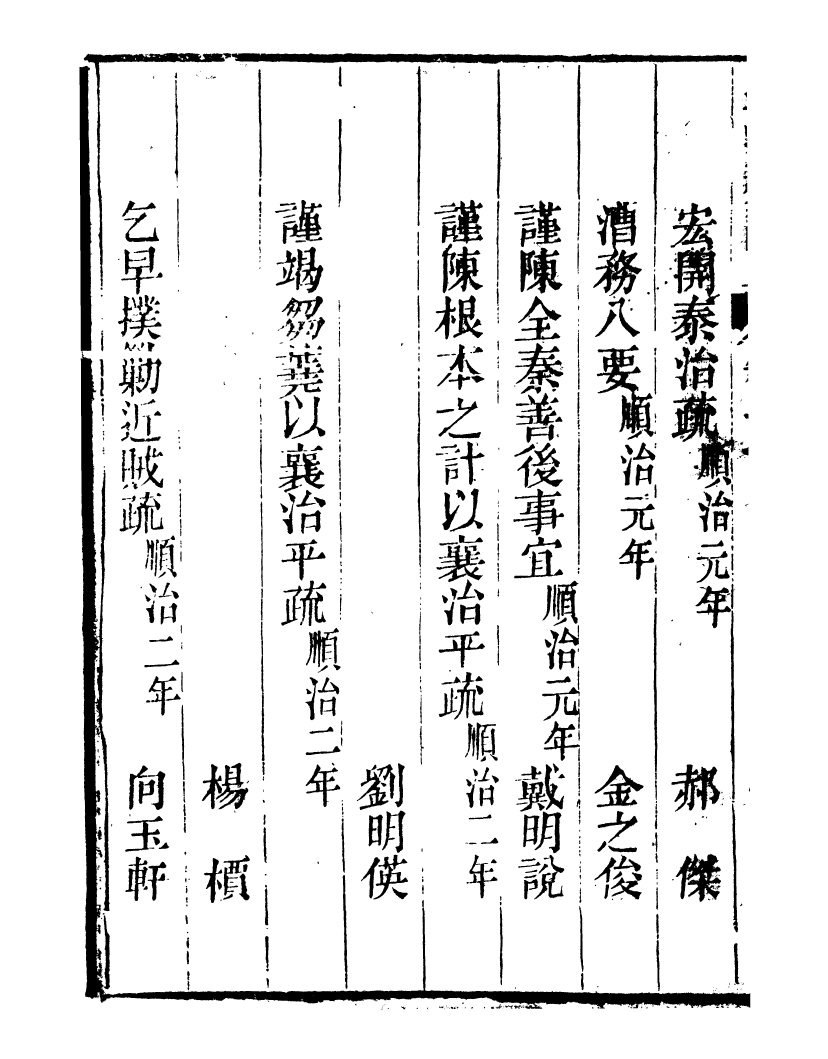 宏開泰治疏順治元年　郝傑
漕務八要順治元年　金之俊
謹陳全秦善後事宜順治元年戴明說
謹陳根本之計以襄治平疏順治二年
劉明偀
謹竭芻蕘以襄治平疏順治二年
楊檟
乞早撲勦近賊疏順治二年　向玉軒